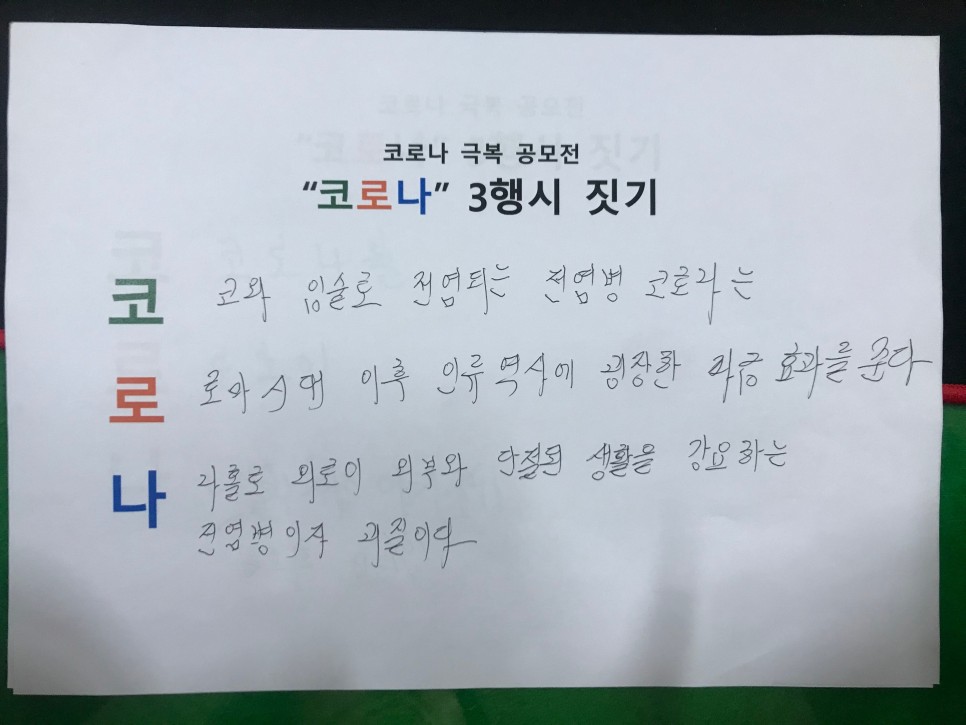 코로나 극복 공모전
“코로나” 3행시 짓기
코 코와 입술로 전염되는 전염병 코로나는
로 로마시대 이후 인류역사에 굉장한 파급 효과를 준다
나 나홀로 외로이 외부와 단절된 생활을 강요하는
전염병이자 괴질이다